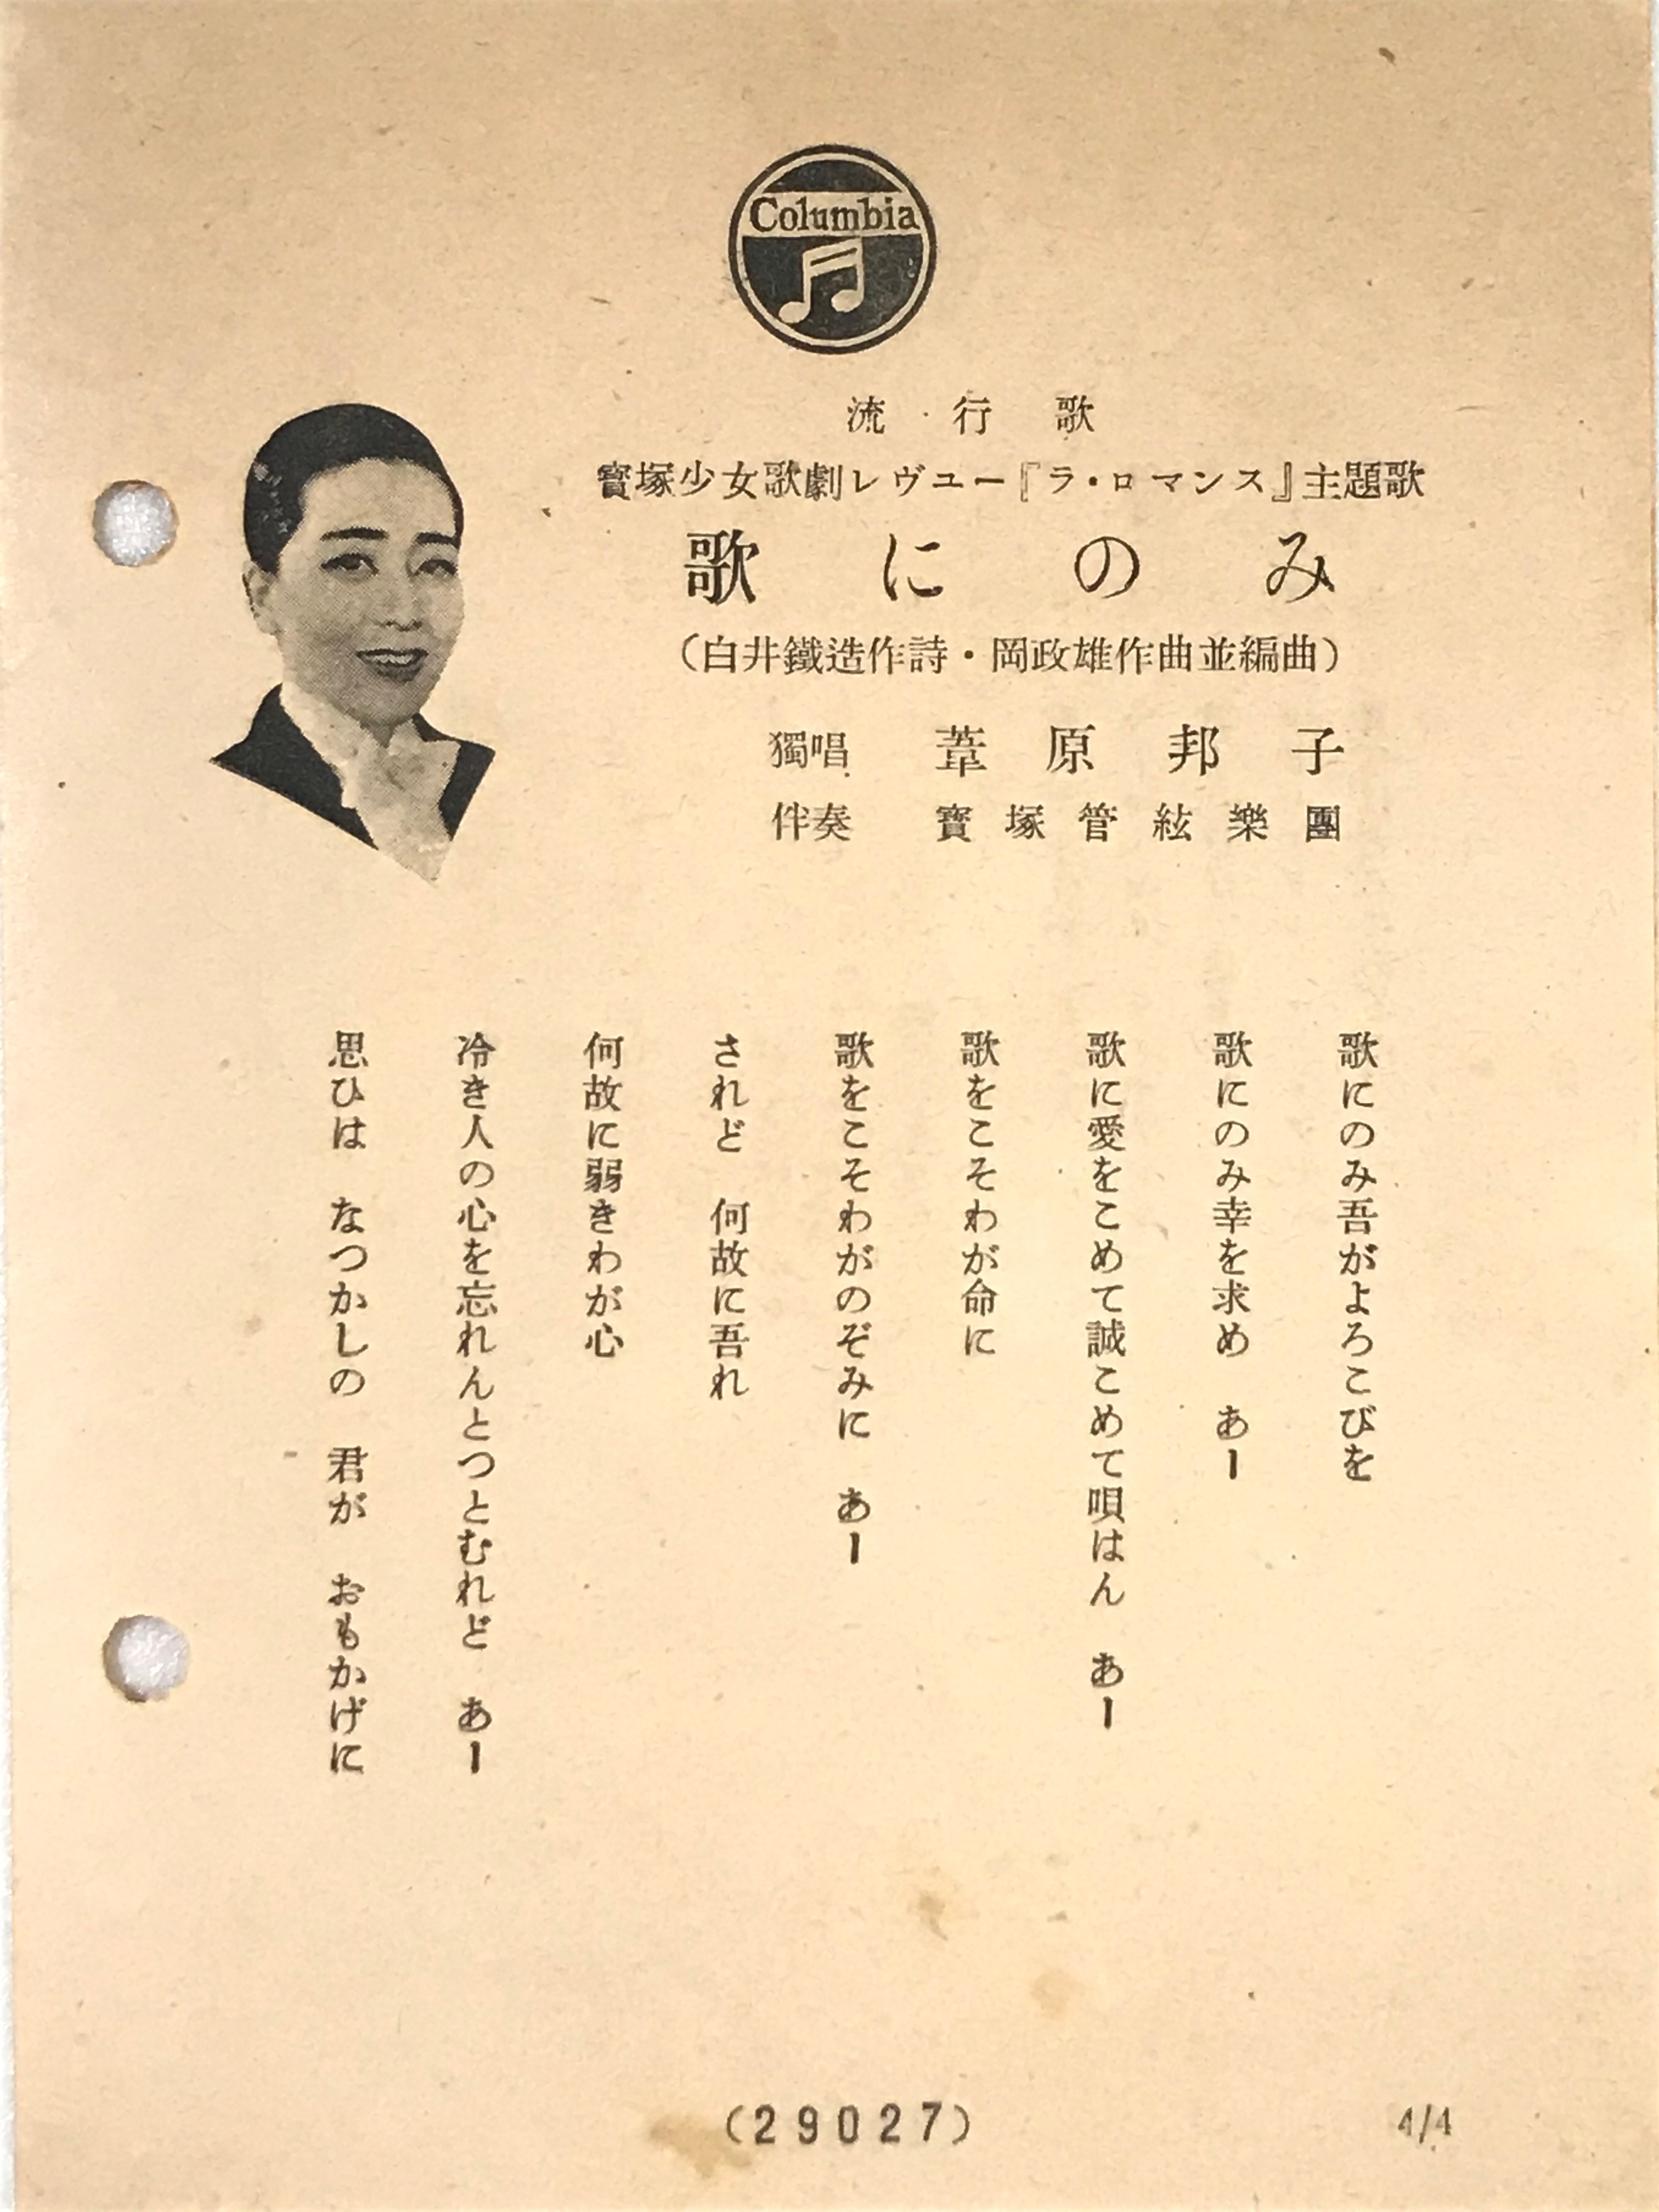 Columbia
流行歌
寶塚少女歌劇レヴユー『ラ・ロマンス』主題歌
歌にのみ
（白井鐵造作詩・岡政雄作曲並編曲）
獨唱　葦原邦子
伴奏　寶塚管絃樂團
歌にのみ吾がよろこびを
歌にのみ幸を求め　あー
歌に愛をこめて誠こめて唄はん　あー
歌をこそわが命に
歌をこそわがのぞみに　あー
されど　何故に吾れ
何故に弱きわが心
冷き人の心を忘れんとつとむれど　あー
思ひは　なつかしの　君が　おもかげに
(29027)
4/4